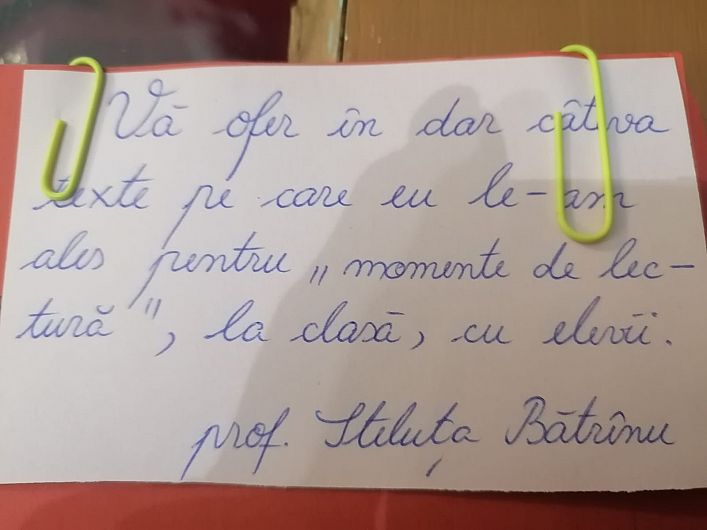 Vă ofer în dar câteva
texte pe care eu le-am
ales pentru „momente de lec-
tură", la clasă, cu elevii.
prof. Steluța Bătrînu